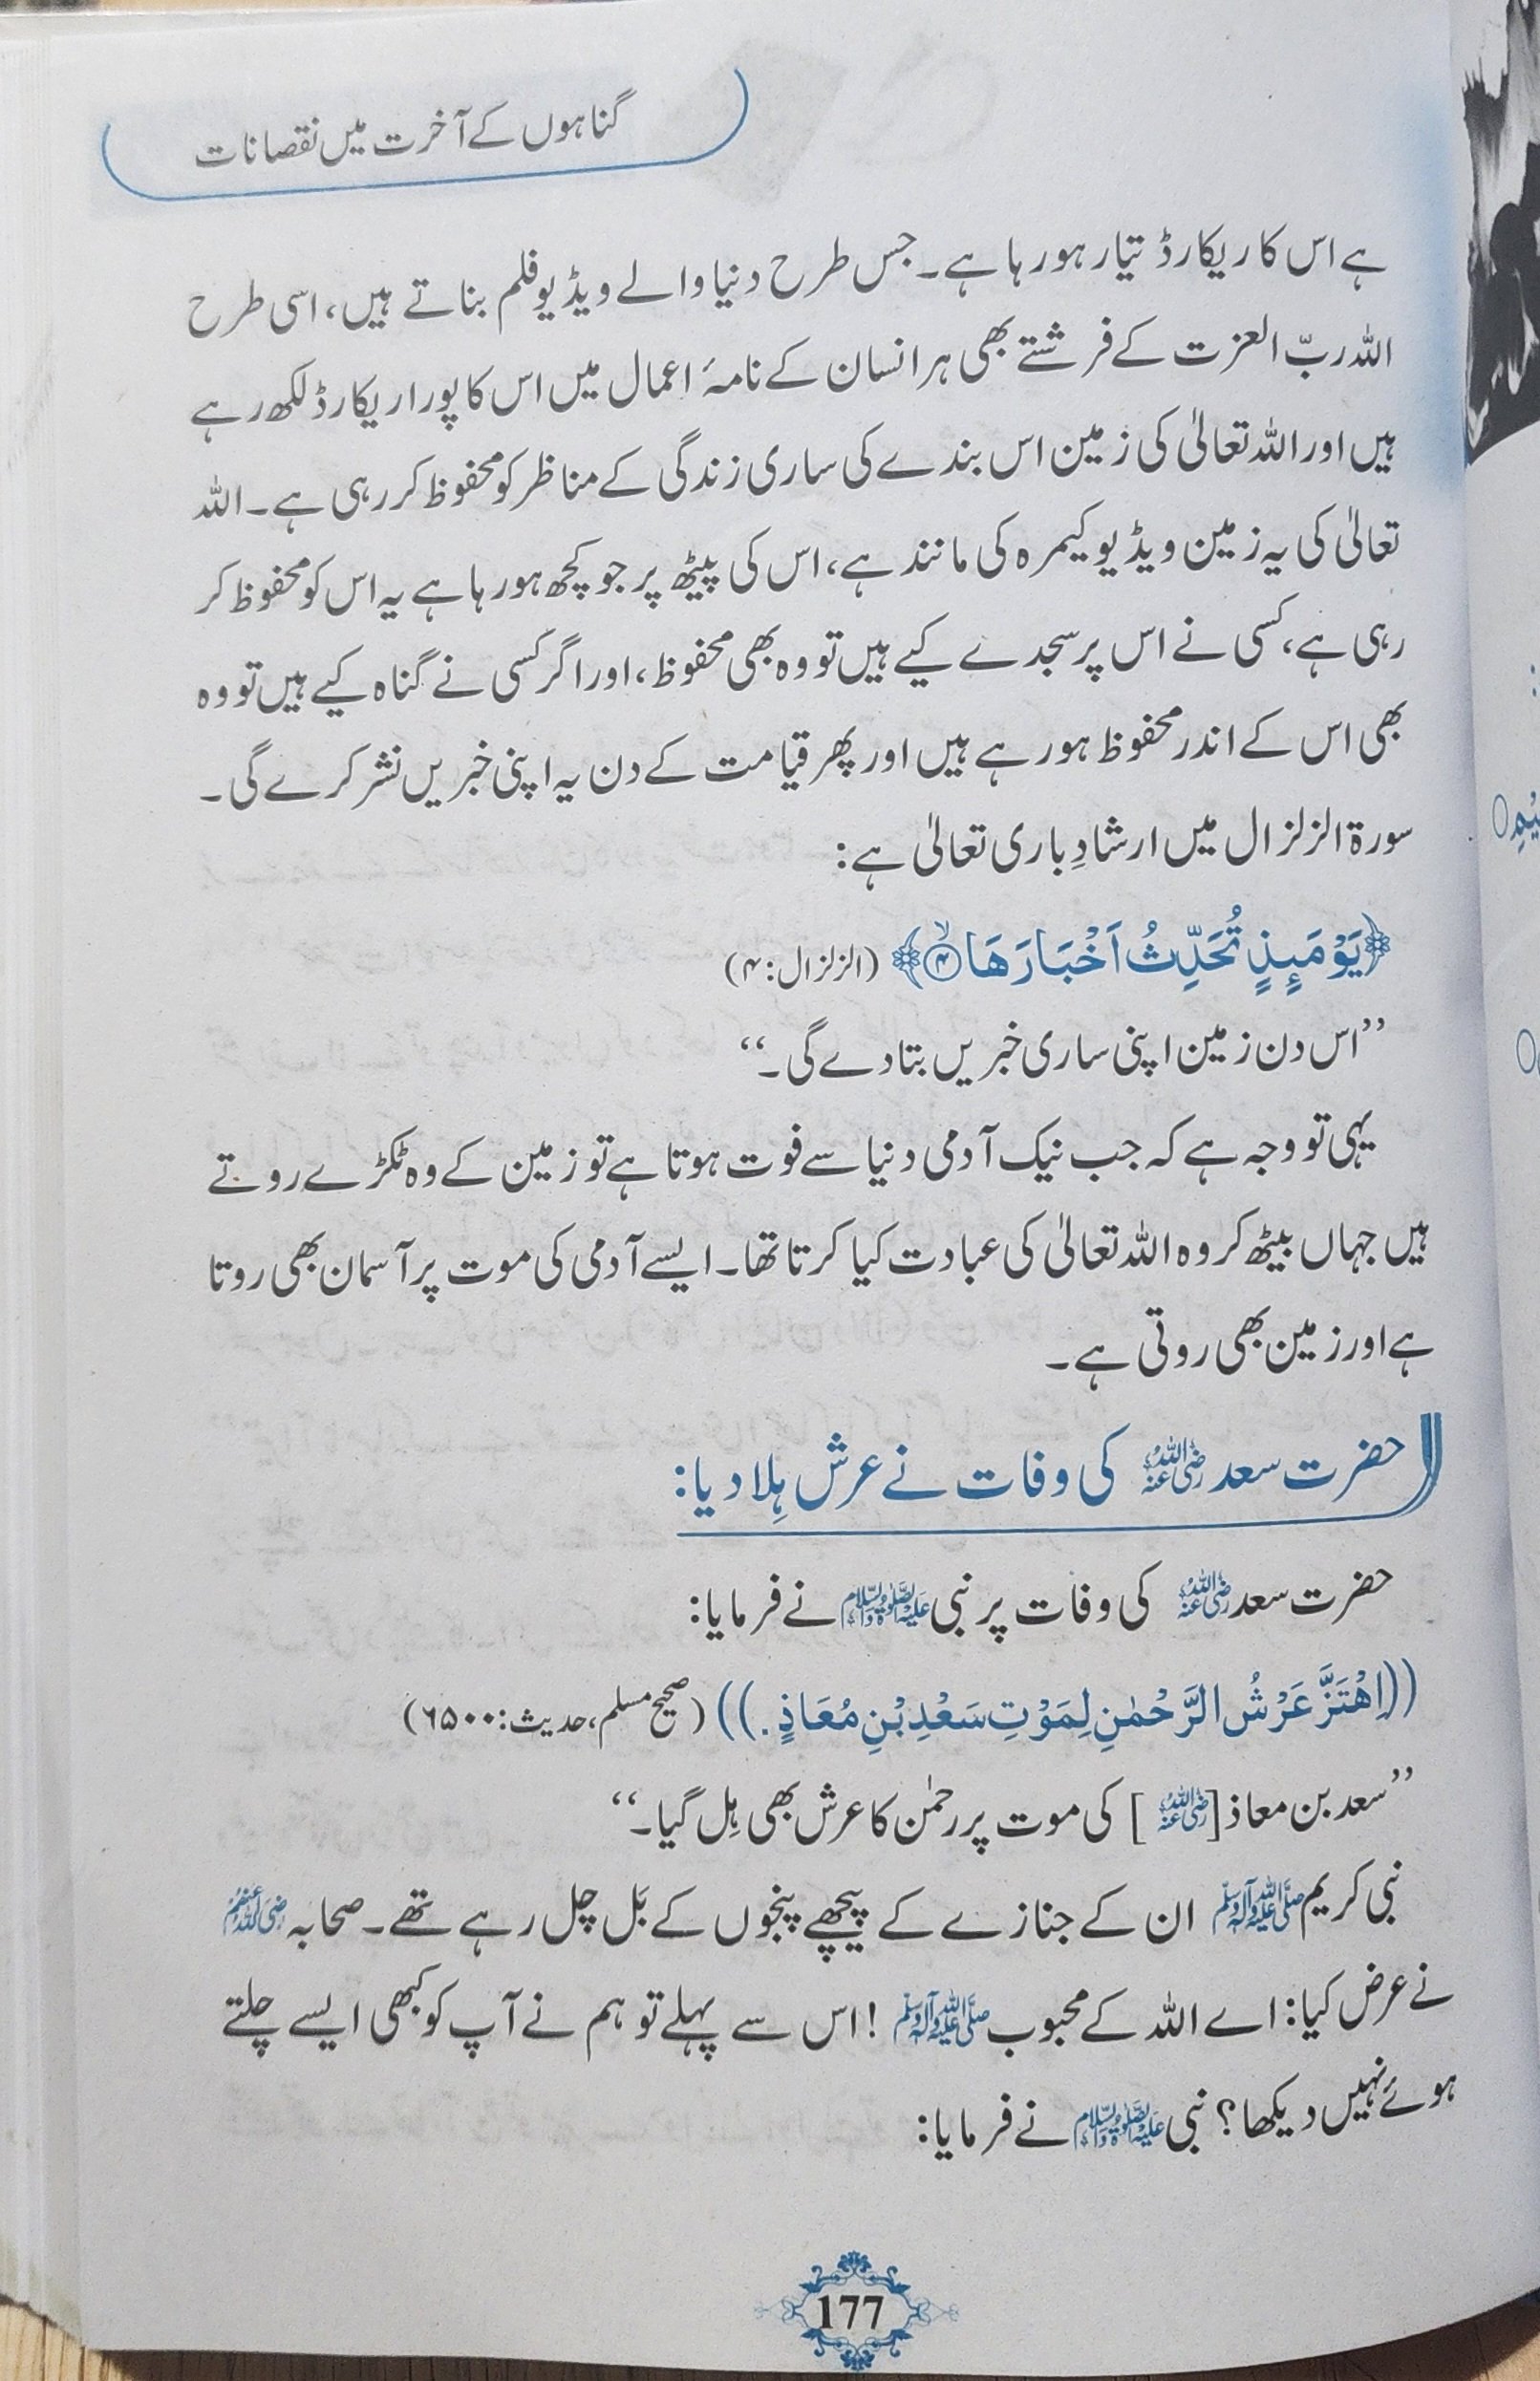 گناہوں کے آخرت میں نقصانات
ہے اس کا ریکارڈ تیار ہو رہا ہے۔ جس طرح دنیا والے ویڈیو فلم بناتے ہیں، اسی طرح
اللہ ربّ العزت کے فرشتے بھی ہر انسان کے نامۂ اعمال میں اس کا پورا ریکارڈ لکھ رہے
ہیں اور اللہ تعالیٰ کی زمین اس بندے کی ساری زندگی کے مناظر کو محفوظ کر رہی ہے۔ اللہ
تعالیٰ کی یہ زمین ویڈیو کیمرہ کی مانند ہے، اس کی پیٹھ پر جو کچھ ہو رہا ہے یہ اس کو محفوظ کر
رہی ہے، کسی نے اس پر سجدے کیے ہیں تو وہ بھی محفوظ، اور اگر کسی نے گناہ کیے ہیں تو وہ
بھی اس کے اندر محفوظ ہو رہے ہیں اور پھر قیامت کے دن یہ اپنی خبریں نشر کرے گی۔
سورۃ الزلزال میں ارشادِ باری تعالیٰ ہے:
﴿یَوْمَىِٕذٍ تُحَدِّثُ اَخْبَارَهَا ۙ۴﴾ (الزلزال: ۴)
’’اس دن زمین اپنی ساری خبریں بتا دے گی۔‘‘
یہی تو وجہ ہے کہ جب نیک آدمی دنیا سے فوت ہوتا ہے تو زمین کے وہ ٹکڑے روتے
ہیں جہاں بیٹھ کر وہ اللہ تعالیٰ کی عبادت کیا کرتا تھا۔ ایسے آدمی کی موت پر آسمان بھی روتا
ہے اور زمین بھی روتی ہے۔
حضرت سعد رضی اللہ عنہ کی وفات نے عرش ہِلا دیا:
حضرت سعد رضی اللہ عنہ کی وفات پر نبی علیہ الصلوٰۃ والسلام نے فرمایا:
((اِهْتَزَّ عَرْشُ الرَّحْمٰنِ لِمَوْتِ سَعْدِ بْنِ مُعَاذٍ.)) (صحیح مسلم، حدیث: ۶۵۰۰)
’’سعد بن معاذ [رضی اللہ عنہ] کی موت پر رحمٰن کا عرش بھی ہِل گیا۔‘‘
نبی کریم صلی اللہ علیہ وآلہ وسلم ان کے جنازے کے پیچھے پنجوں کے بَل چل رہے تھے۔ صحابہ رضی اللہ عنہم
نے عرض کیا: اے اللہ کے محبوب صلی اللہ علیہ وآلہ وسلم! اس سے پہلے تو ہم نے آپ کو کبھی ایسے چلتے
ہوئے نہیں دیکھا؟ نبی علیہ الصلوٰۃ والسلام نے فرمایا:
177